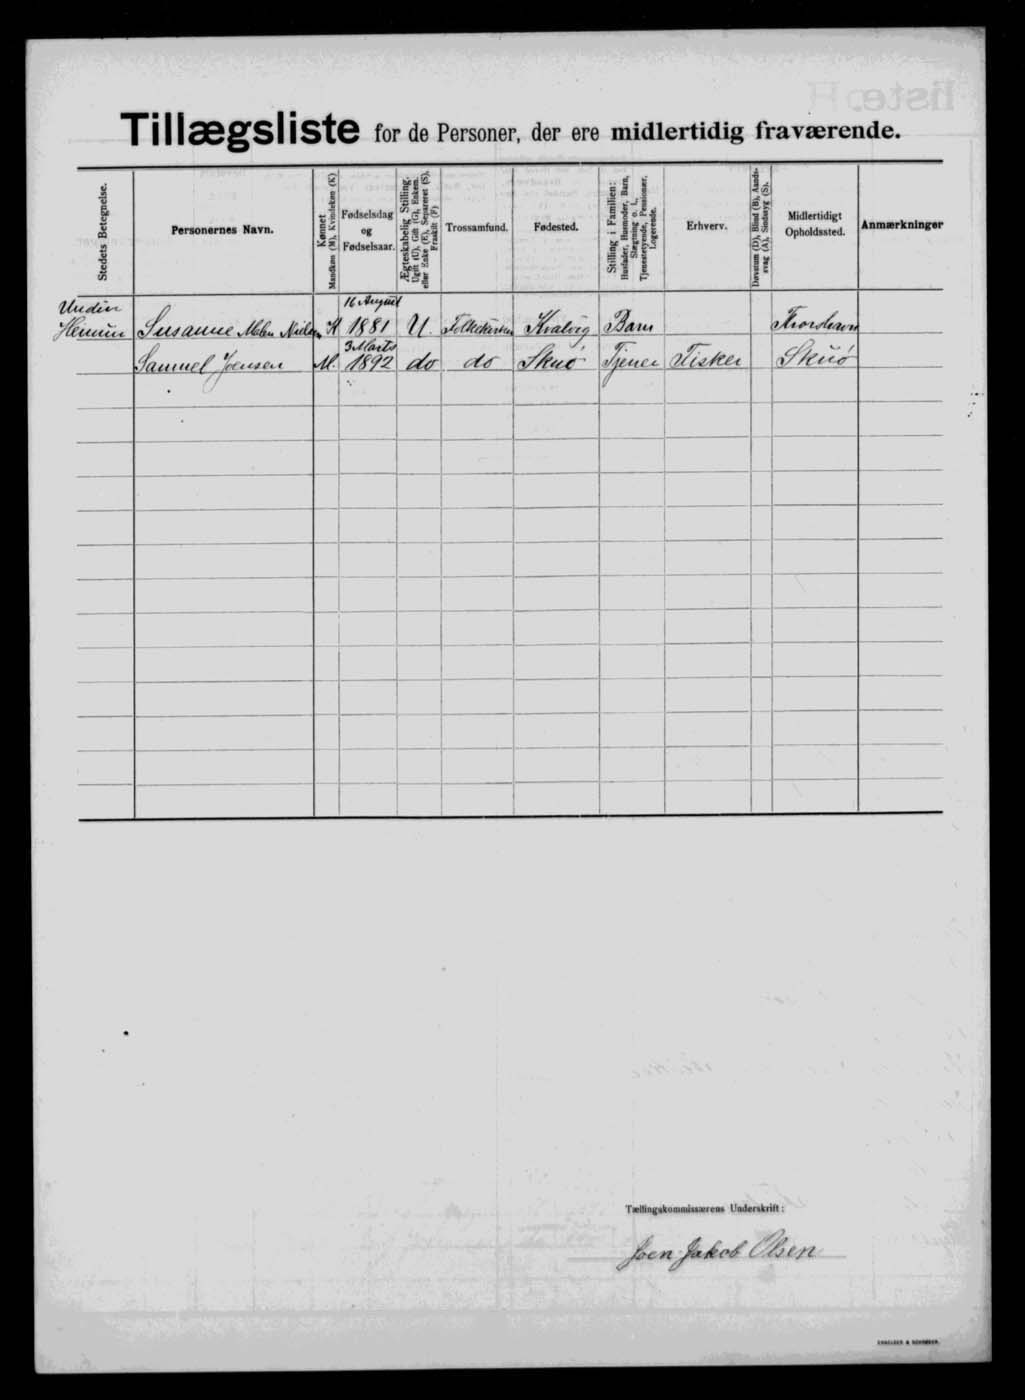 Tillægsliste for de Personer, der ere midlertidig fraværende.
Stedets Betegnelse.
Personernes Navn.
Kønnet
Mandkøn (M), Kvindekøn (K)
Fødselsdag
og
Fødselsaar.
Ægteskabelig Stilling.
Ugift (U), Gift (G), Enkem.
eller Enke (E), Separeret (S),
Fraskilt (F)
Trossamfund.
Fødested.
Stilling i Familien:
Husfader, Husmoder, Barn,
Slægtning o. l.,
Tjenestetyende, Pensionær,
Logerende.
Erhverv.
Døvstum (D), Blind (B), Aands-
svag (A), Sindssyg (S).
Midlertidigt
Opholdssted.
Anmærkninger
16 August
Susanne Malen Nielsen K 1881 U. Folkekirken Kvalvig Barn Thorshavn
3 Marts
Samuel Joensen M. 1892 do do Skuø Tjener Fisker Skuø
Tællingskommissærens Underskrift:
Joen Jakob Olsen